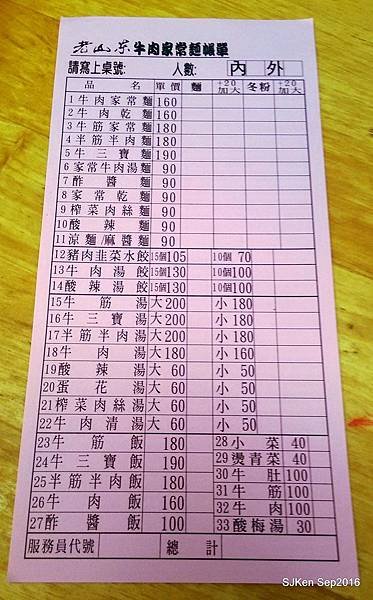 老山東牛肉家常麵帳單
請寫上桌號: 人數: 內 外
品 名 單價 麵 +20加大 冬粉 +20加大
1牛肉家常麵 160
2牛肉乾麵 160
3牛筋家常麵 180
4半筋半肉麵 180
5牛三寶麵 190
6家常牛肉湯麵 90
7酢醬麵 90
8家常乾麵 90
9榨菜肉絲麵 90
10酸辣麵 90
11涼麵/麻醬麵 90
12豬肉韭菜水餃 15個105 10個 70
13牛肉湯餃 15個130 10個100
14酸辣湯餃 15個130 10個100
15牛筋湯 大 200 小 180
16牛三寶湯 大 200 小 180
17半筋半肉湯 大 200 小 180
18牛肉湯 大 180 小 160
19酸辣湯 大 60 小 50
20蛋花湯 大 60 小 50
21榨菜肉絲湯 大 60 小 50
22牛肉清湯 大 60 小 50
23牛筋飯 180 28小菜 40
24牛三寶飯 190 29燙青菜 40
25半筋半肉飯 180 30牛肚 100
26牛肉飯 160 31牛筋 100
27酢醬飯 100 32牛肉 100
33酸梅湯 30
服務員代號 總計
SJKen Sep2016